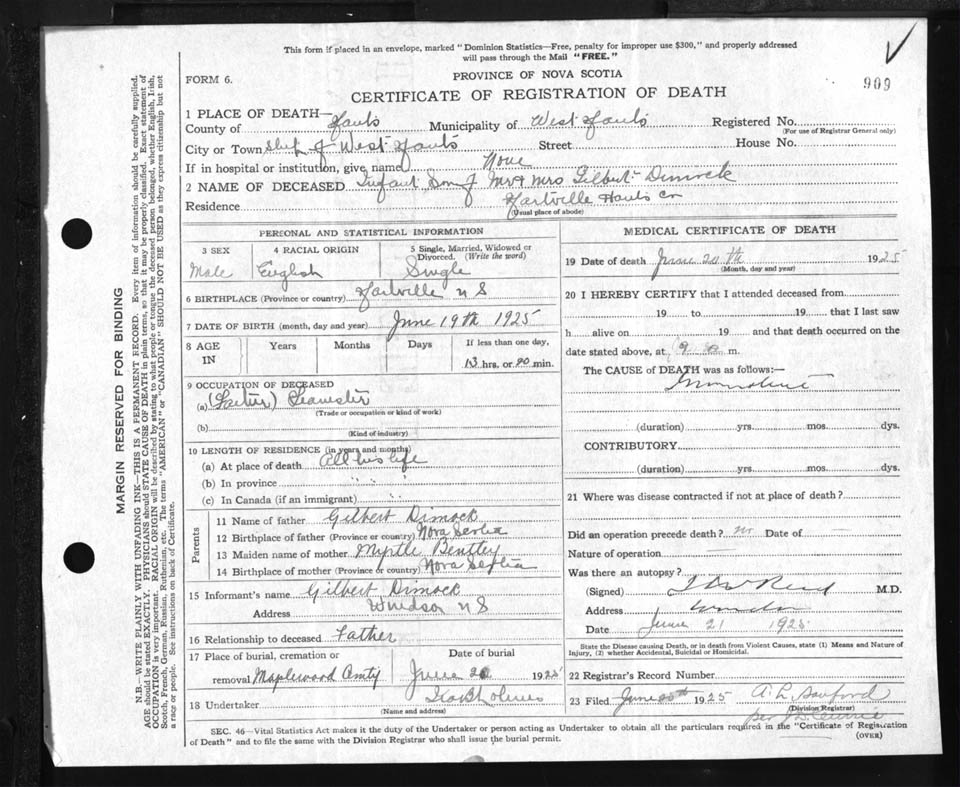 This form if placed in an envelope, marked "Dominion Statistics—Free, penalty for improper use $300," and properly addressed
will pass through the Mail "FREE."
FORM 6.
PROVINCE OF NOVA SCOTIA
909
CERTIFICATE OF REGISTRATION OF DEATH
1 PLACE OF DEATH—
County of Hants Municipality of West Hants Registered No.
(For use of Registrar General only)
City or Town of West Hants Street House No.
If in hospital or institution, give name None
2 NAME OF DECEASED Infant Son of Mr & Mrs Gilbert Dimock
Residence Hartville Hants Co
(Usual place of abode)
PERSONAL AND STATISTICAL INFORMATION
3 SEX
Male
4 RACIAL ORIGIN
English
5 Single, Married, Widowed or
Divorced. (Write the word)
Single
6 BIRTHPLACE (Province or country) Hartville N S
7 DATE OF BIRTH (month, day and year) June 19th 1925
8 AGE
IN
Years
Months
Days
If less than one day,
13 hrs. or 20 min.
9 OCCUPATION OF DECEASED
(a) Teamster
(Trade or occupation or kind of work)
(b)
(Kind of industry)
10 LENGTH OF RESIDENCE (in years and months)
(a) At place of death All his life
(b) In province " "
(c) In Canada (if an immigrant) " "
Parents
11 Name of father Gilbert Dimock
12 Birthplace of father (Province or country) Nova Scotia
13 Maiden name of mother Myrtle Bentley
14 Birthplace of mother (Province or country) Nova Scotia
15 Informant's name Gilbert Dimock
Address Windsor N S
16 Relationship to deceased Father
17 Place of burial, cremation or
removal Maplewood Cmty
Date of burial
June 20 1925
18 Undertaker
(Name and address)
MEDICAL CERTIFICATE OF DEATH
19 Date of death June 20 th 1925
(Month, day and year)
20 I HEREBY CERTIFY that I attended deceased from
19 to 19 that I last saw
h alive on 19 and that death occurred on
date stated above, at 9 m.
The CAUSE of DEATH was as follows:—
(duration) yrs. mos. dys.
CONTRIBUTORY
(duration) yrs. mos. dys.
21 Where was disease contracted if not at place of death?
Did an operation precede death? no Date of
Nature of operation
Was there an autopsy?
(Signed) M.D.
Address Windsor
Date June 21 1925
State the Disease causing Death, or in death from Violent Causes, state (1) Means and Nature of
Injury, (2) whether Accidental, Suicidal or Homicidal.
22 Registrar's Record Number
23 Filed June 20th 1925 A L Sanford
(Division Registrar)
SEC. 46—Vital Statistics Act makes it the duty of the Undertaker or person acting as Undertaker to obtain all the particulars required in the "Certificate of Registration
of Death" and to file the same with the Division Registrar who shall issue the burial permit.
(OVER)
MARGIN RESERVED FOR BINDING
N.B.—WRITE PLAINLY WITH UNFADING INK—THIS IS A PERMANENT RECORD. Every item of information should be carefully supplied.
AGE should be stated EXACTLY. PHYSICIANS should STATE CAUSE OF DEATH in plain terms, so that it may be properly classified. Exact statement of
OCCUPATION is very important. RACIAL ORIGIN will be described by stating to what people or tongue the deceased person belonged, whether English, Irish,
Scotch, French, German, Russian, Ruthenian, etc. The terms "AMERICAN" or "CANADIAN" SHOULD NOT BE USED as they express citizenship but not
a race or people. See instructions on back of Certificate.